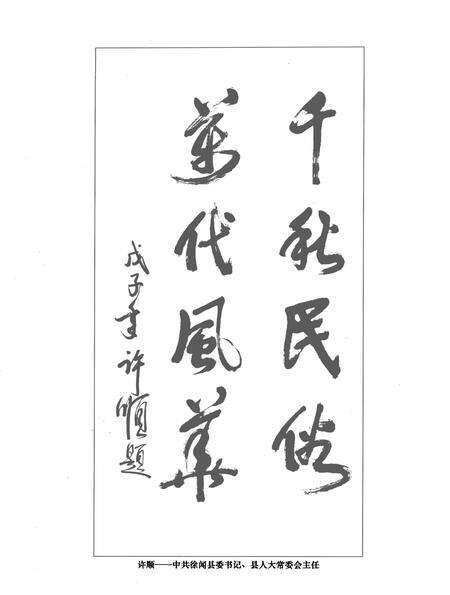 千秋民俗
萬代風華
戊子年许順题
许顺——中共徐闻县委书记、县人大常委会主任